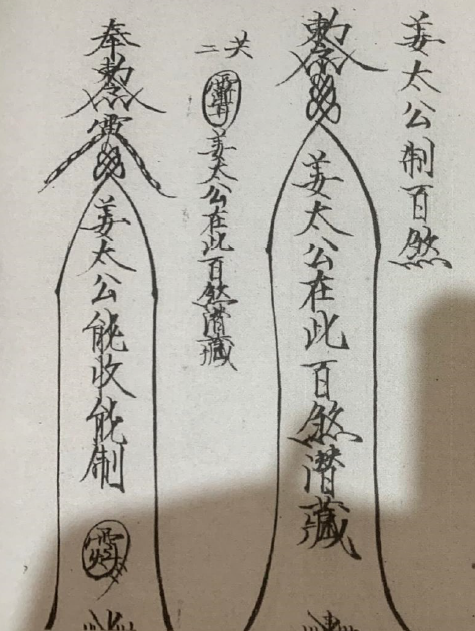 姜太公制百煞
姜太公在此百煞潜藏
共二
姜太公在此百煞潜藏
奉勅
姜太公能收能制